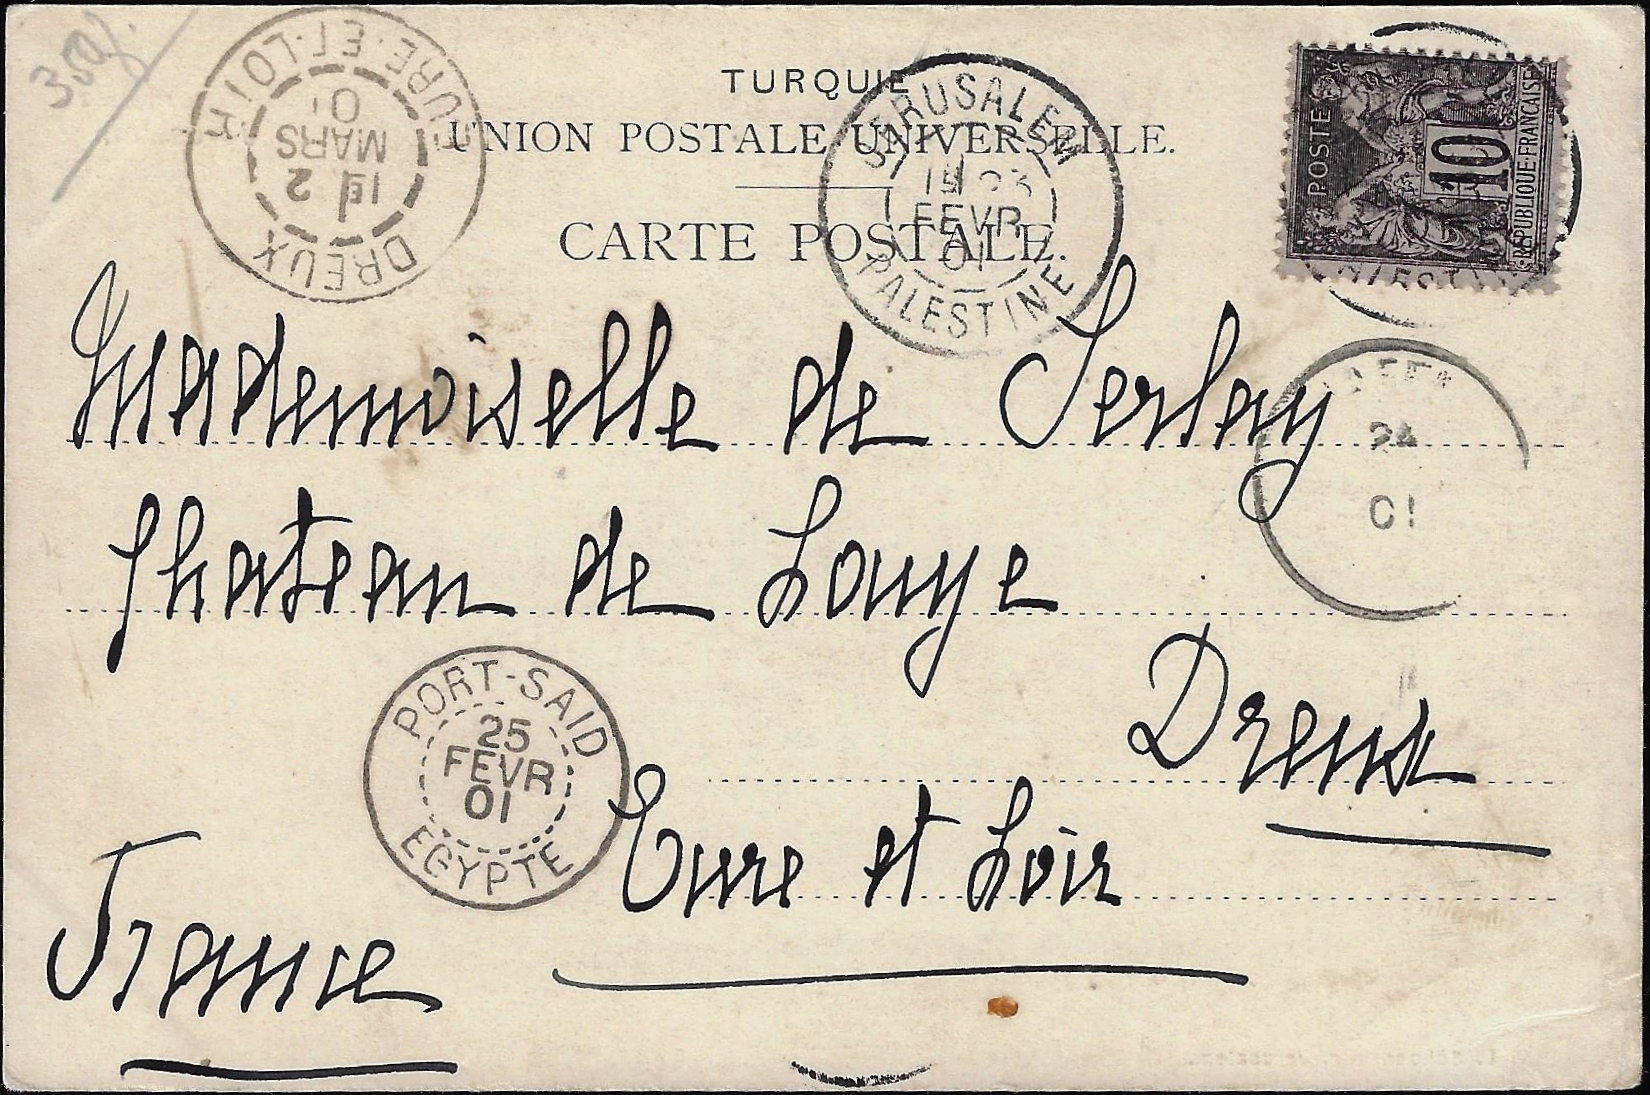 350f.
TURQUIE
UNION POSTALE UNIVERSELLE.
CARTE POSTALE.
DREUX
1E 2
MARS
01
EURE-ET-LOIR
JERUSALEM
23
FEVR
01
PALESTINE
POSTES
10
REPUBLIQUE FRANÇAISE
24
01
Mademoiselle de Serlay
Chateau de Louye
Dreux
Eure et Loir
France
PORT-SAID
25
FEVR
01
EGYPTE